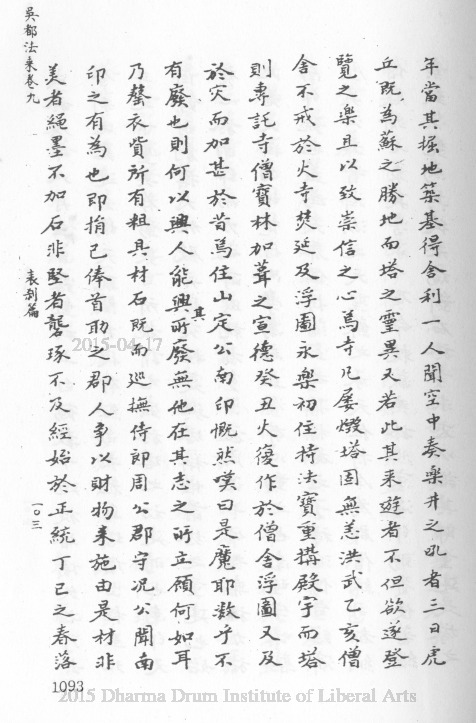 年當其掘地築基得舍利一人聞空中奏樂井之吼者三日虎
丘既為蘇之勝地而塔之靈異又若此其来遊者不但欲遂登
覽之樂且以致崇信之心焉寺凡屡燬塔固無恙洪武乙亥僧
舍不戒於火寺焚延及浮圖永樂初住持法寶重搆殿宇而塔
則專託寺僧寶林加葺之宣德癸丑火復作於僧舍浮圖又及
於灾而加甚於昔焉住山定公南印慨然嘆曰是魔耶数乎不
有廢也則何以興人能興其所廢無他在其志之所立頋何如耳
乃罄衣資所有粗具材石既而巡撫侍郎周公郡守况公聞南
印之有為也即捐己俸首助之郡人争以財物来施由是材非
美者繩墨不加石非堅者礱琢不及經始於正統丁巳之春落
吳都法乘卷九
表刹篇
一〇三
1093
2015-04-17
2015 Dharma Drum Institute of Liberal Arts